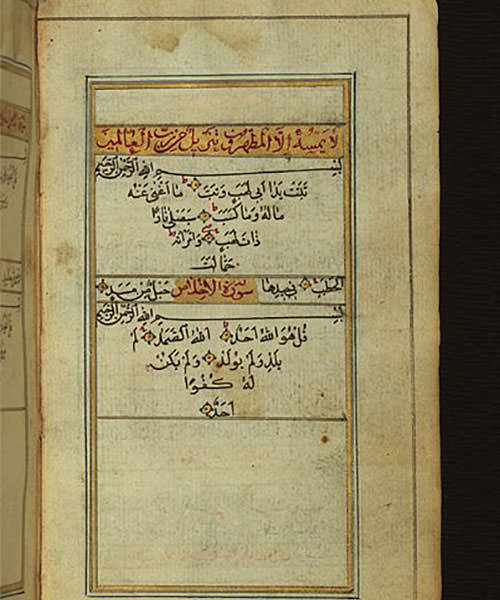 لا يمسه الا المطهرون تنزيل من رب العالمين
بسم الله الرحمن الرحيم
تبت يدا ابى لهب وتب ما اغنى عنه
ماله وما كسب سيصلى نارا
ذات لهب وامراته
حمالت
الحطب فى جيدها سورة الاخلاص حبل من مسد
بسم الله الرحمن الرحيم
قل هو الله احد الله الصمد لم
يلد ولم يولد ولم يكن
له كفوا
احد